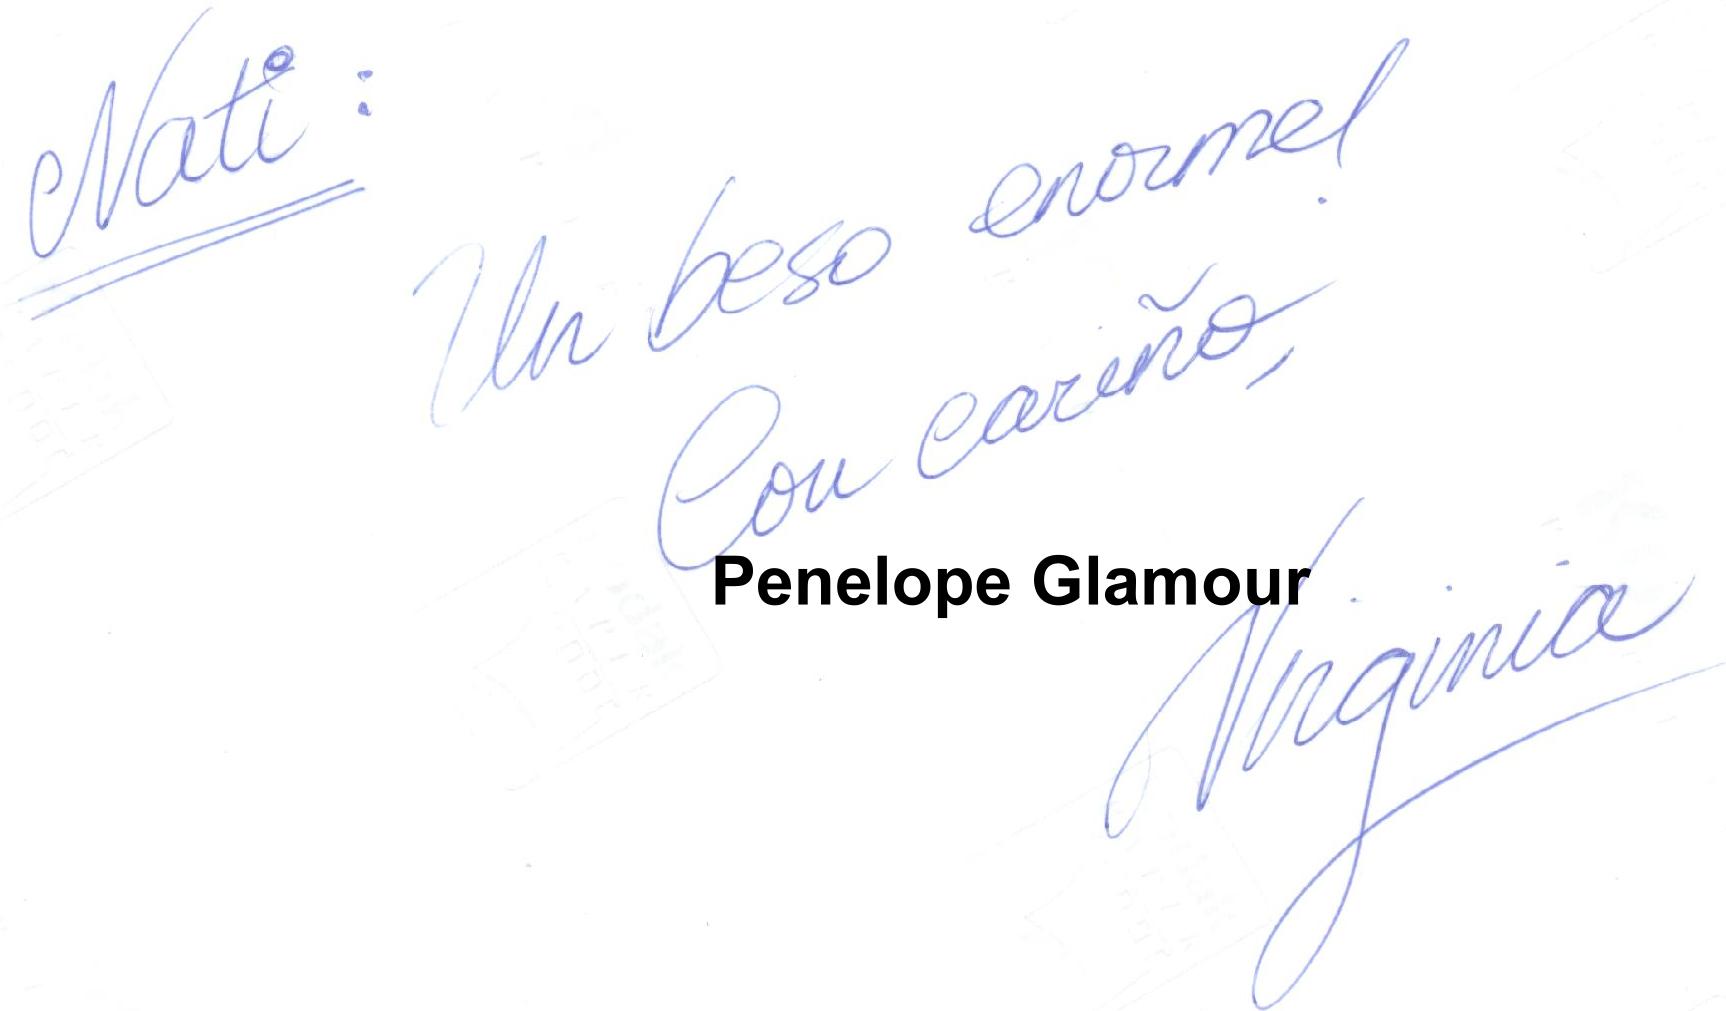 Nati:
Un beso enorme!
Con cariño,
Penelope Glamour
Virginia